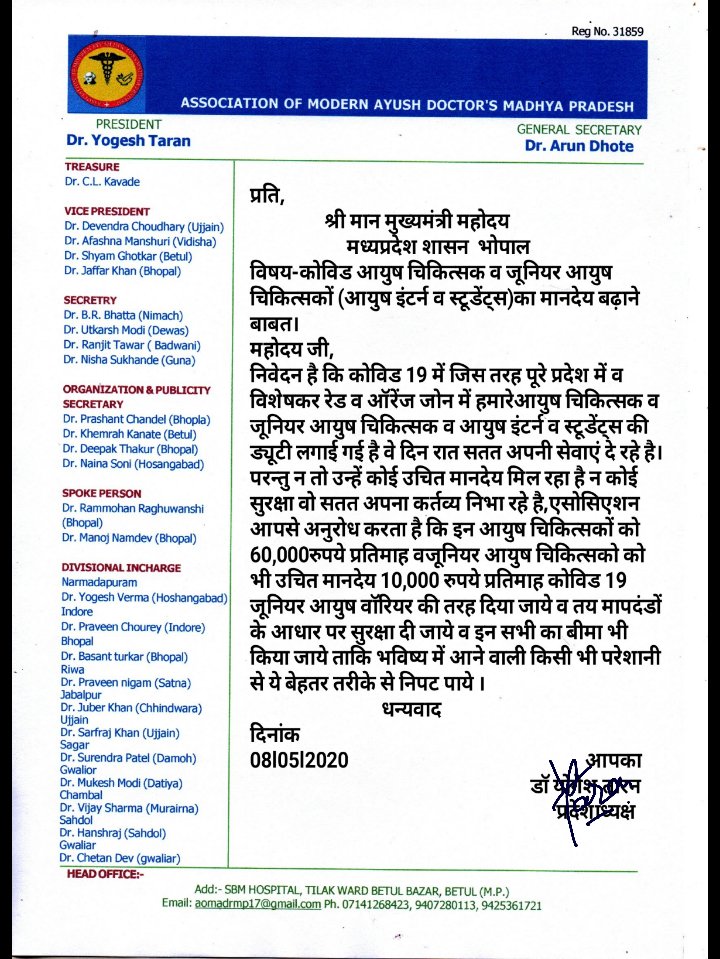 Reg No. 31859
ASSOCIATION OF MODERN AYUSH DOCTOR'S MADHYA PRADESH
PRESIDENT
Dr. Yogesh Taran
GENERAL SECRETARY
Dr. Arun Dhote
TREASURE
Dr. C.L. Kavade
VICE PRESIDENT
Dr. Devendra Choudhary (Ujjain)
Dr. Afashna Manshuri (Vidisha)
Dr. Shyam Ghotkar (Betul)
Dr. Jaffar Khan (Bhopal)
SECRETRY
Dr. B.R. Bhatta (Nimach)
Dr. Utkarsh Modi (Dewas)
Dr. Ranjit Tawar ( Badwani)
Dr. Nisha Sukhande (Guna)
ORGANIZATION & PUBLICITY
SECRETARY
Dr. Prashant Chandel (Bhopla)
Dr. Khemrah Kanate (Betul)
Dr. Deepak Thakur (Bhopal)
Dr. Naina Soni (Hosangabad)
SPOKE PERSON
Dr. Rammohan Raghuwanshi
(Bhopal)
Dr. Manoj Namdev (Bhopal)
DIVISIONAL INCHARGE
Narmadapuram
Dr. Yogesh Verma (Hoshangabad)
Indore
Dr. Praveen Chourey (Indore)
Bhopal
Dr. Basant turkar (Bhopal)
Riwa
Dr. Praveen nigam (Satna)
Jabalpur
Dr. Juber Khan (Chhindwara)
Ujjain
Dr. Sarfraj Khan (Ujjain)
Sagar
Dr. Surendra Patel (Damoh)
Gwalior
Dr. Mukesh Modi (Datiya)
Chambal
Dr. Vijay Sharma (Murairna)
Sahdol
Dr. Hanshraj (Sahdol)
Gwaliar
Dr. Chetan Dev (gwaliar)
प्रति,
श्री मान मुख्यमंत्री महोदय
मध्यप्रदेश शासन भोपाल
विषय-कोविड आयुष चिकित्सक व जूनियर आयुष
चिकित्सकों (आयुष इंटर्न व स्टूडेंट्स)का मानदेय बढ़ाने
बाबत।
महोदय जी,
निवेदन है कि कोविड 19 में जिस तरह पूरे प्रदेश में व
विशेषकर रेड व ऑरेंज जोन में हमारेआयुष चिकित्सक व
जूनियर आयुष चिकित्सक व आयुष इंटर्न व स्टूडेंट्स की
ड्यूटी लगाई गई है वे दिन रात सतत अपनी सेवाएं दे रहे है।
परन्तु न तो उन्हें कोई उचित मानदेय मिल रहा है न कोई
सुरक्षा वो सतत अपना कर्तव्य निभा रहे है,एसोसिएशन
आपसे अनुरोध करता है कि इन आयुष चिकित्सकों को
60,000रुपये प्रतिमाह वजूनियर आयुष चिकित्सको को
भी उचित मानदेय 10,000 रुपये प्रतिमाह कोविड 19
जूनियर आयुष वॉरियर की तरह दिया जाये व तय मापदंडों
के आधार पर सुरक्षा दी जाये व इन सभी का बीमा भी
किया जाये ताकि भविष्य में आने वाली किसी भी परेशानी
से ये बेहतर तरीके से निपट पाये ।
धन्यवाद
दिनांक
08।05।2020
आपका
डॉ योगेश तारन
प्रदेशाध्यक्षं
HEAD OFFICE:-
Add:- SBM HOSPITAL, TILAK WARD BETUL BAZAR, BETUL (M.P.)
Email: aomadrmp17@gmail.com Ph. 07141268423, 9407280113, 9425361721